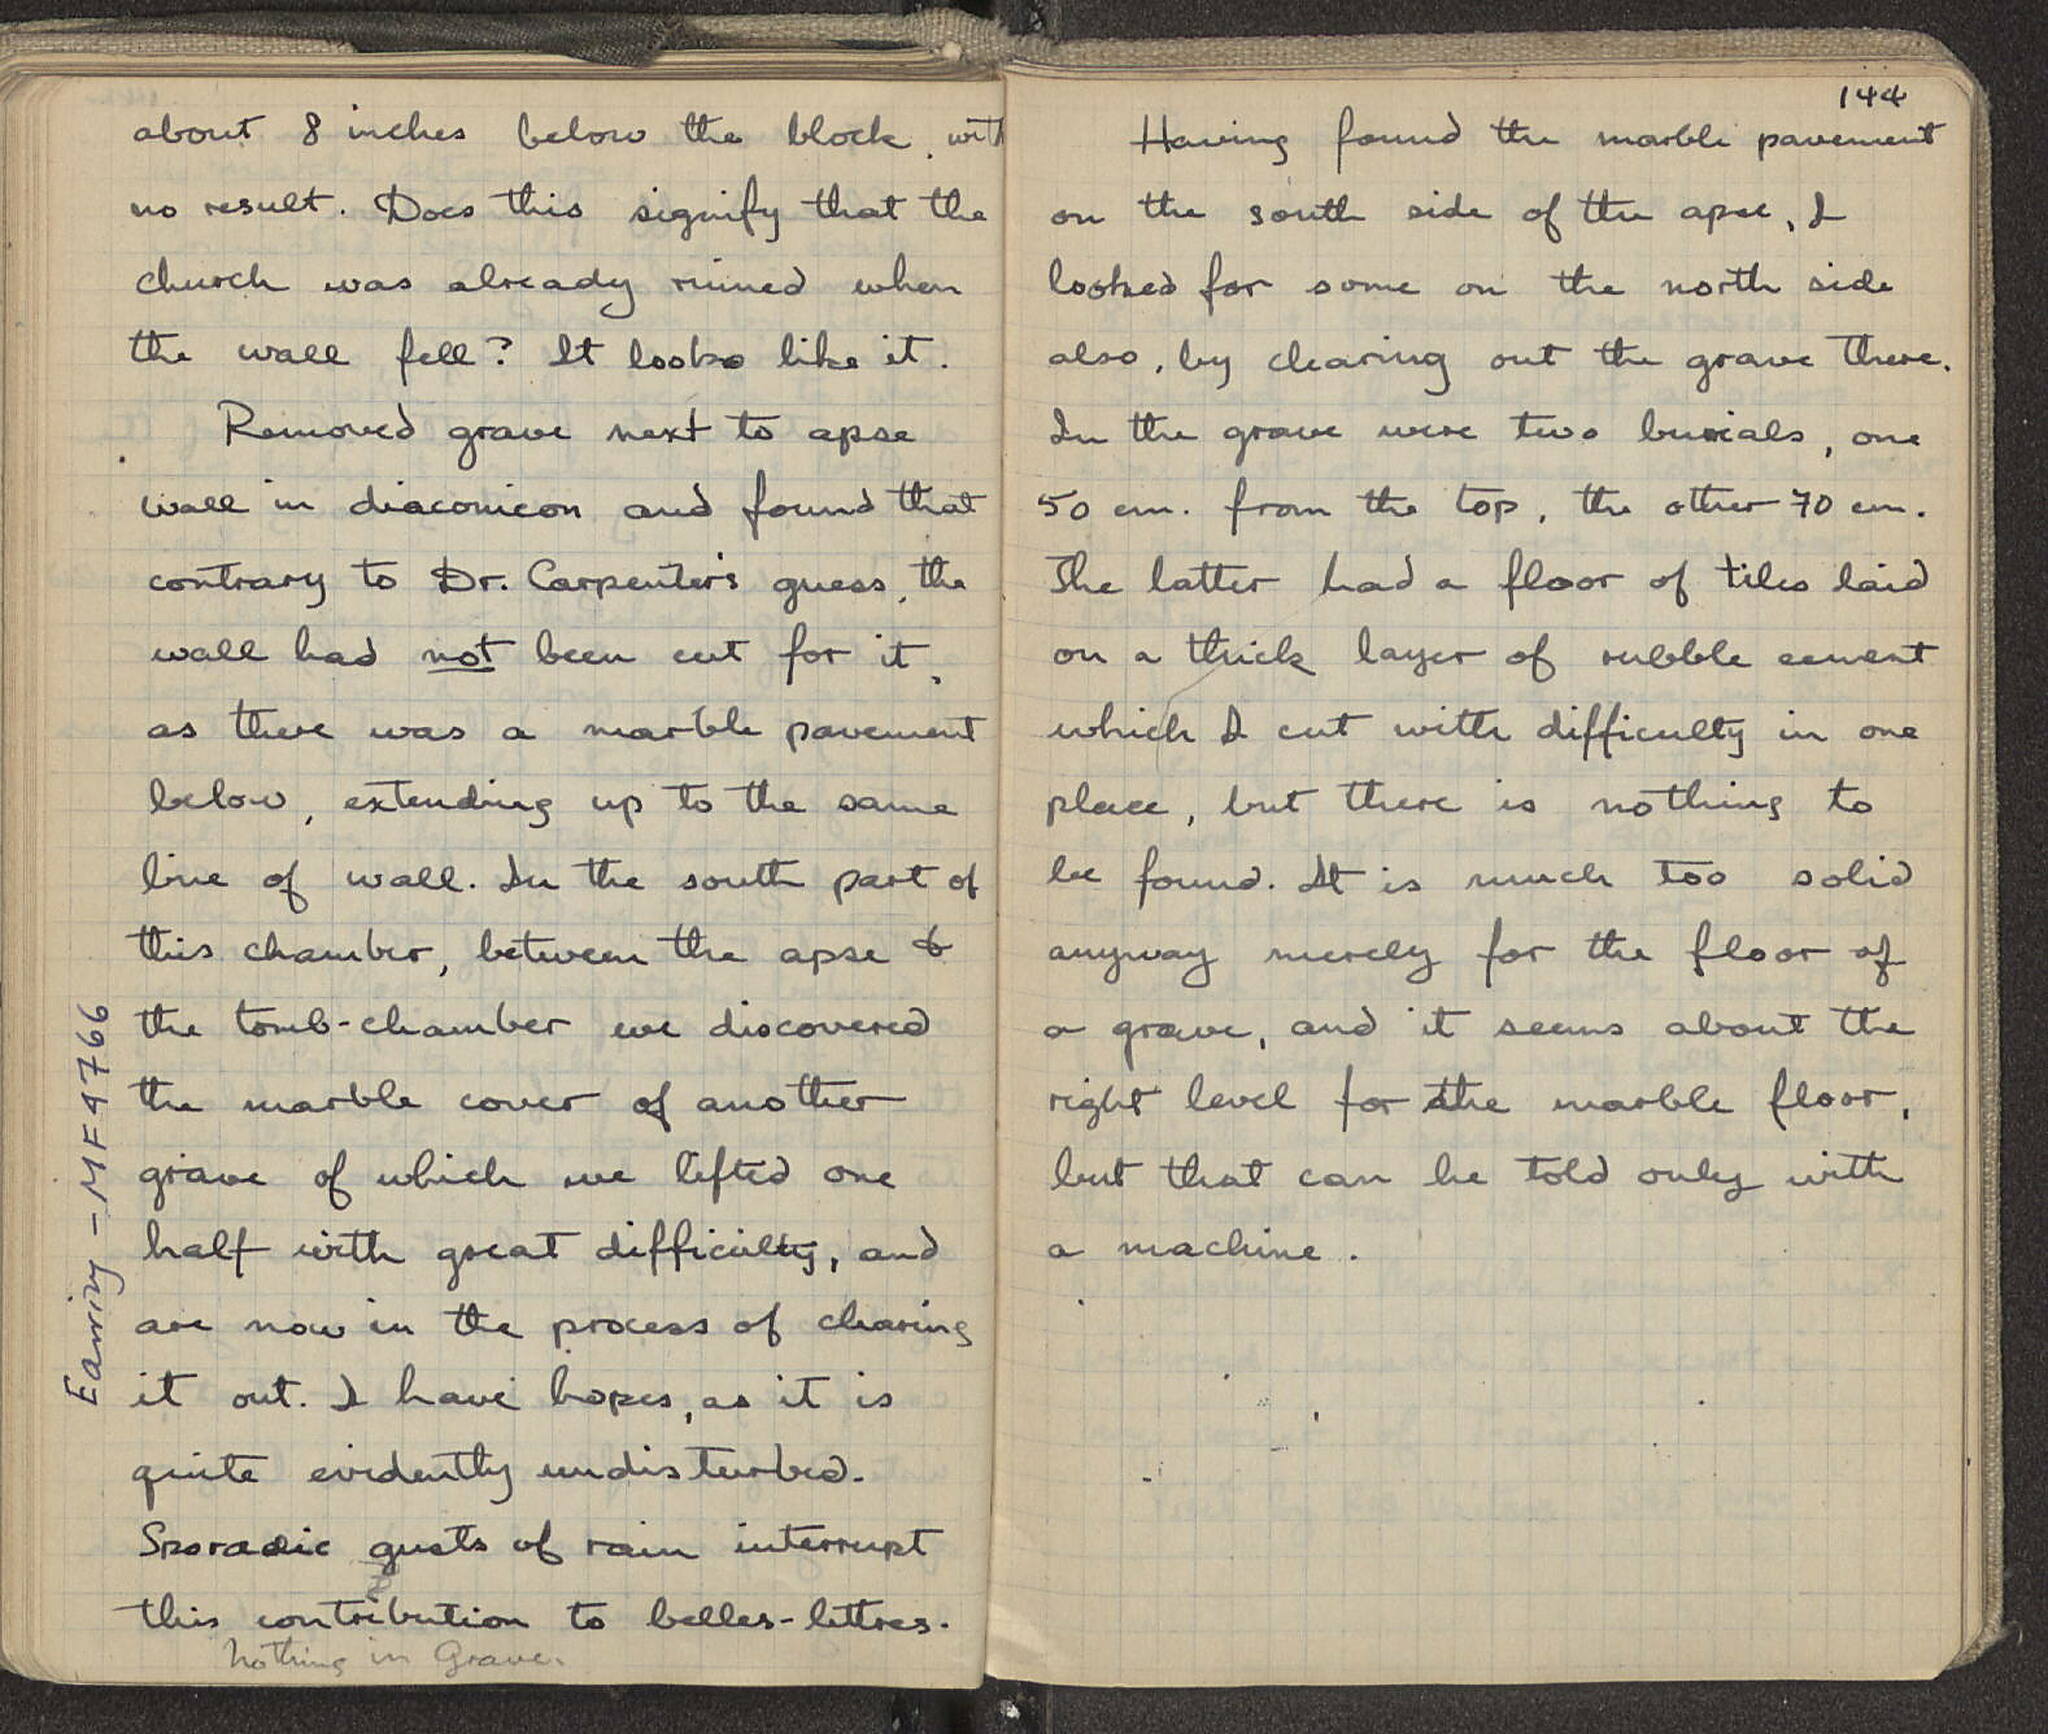 about 8 inches below the block, with
no result. Does this signify that the
church was already ruined when
the wall fell? It looks like it.
Removed grave next to apse
wall in diaconicon and found that
contrary to Dr. Carpenter's guess, the
wall had not been cut for it,
as there was a marble pavement
below, extending up to the same
line of wall. In the south part of
this chamber, between the apse &
the tomb-chamber we discovered
the marble cover of another
grave of which we lifted one
half with great difficulty, and
are now in the process of clearing
it out. I have hopes, as it is
quite evidently undisturbed.
Sporadic gusts of rain interrupt
this contribution to belles-lettres.
Nothing in Grave.
Earring - MF 4766
144
Having found the marble pavement
on the south side of the apse, I
looked for some on the north side
also, by clearing out the grave there.
In the grave were two burials, one
50 cm. from the top, the other 70 cm.
The latter had a floor of tiles laid
on a thick layer of rubble cement
which I cut with difficulty in one
place, but there is nothing to
be found. It is much too solid
anyway merely for the floor of
a grave, and it seems about the
right level for the marble floor,
but that can be told only with
a machine.